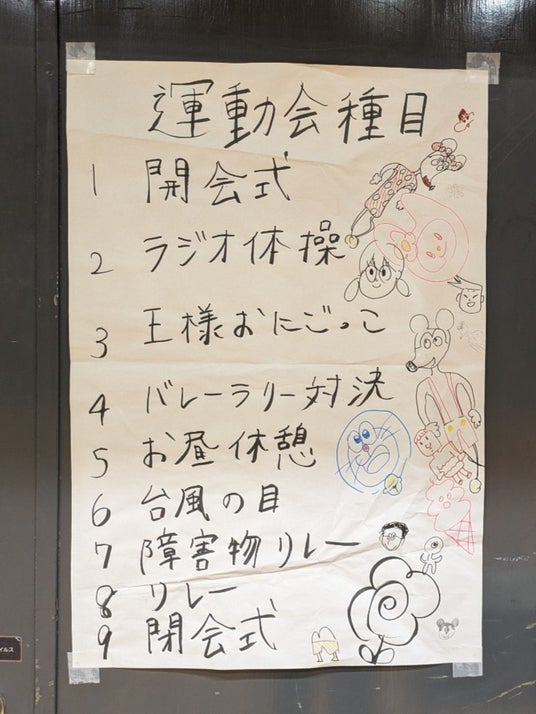 運動会種目
1 開会式
2 ラジオ体操
3 王様おにごっこ
4 バレーラリー対決
5 お昼休憩
6 台風の目
7 障害物リレー
8 リレー
9 閉会式